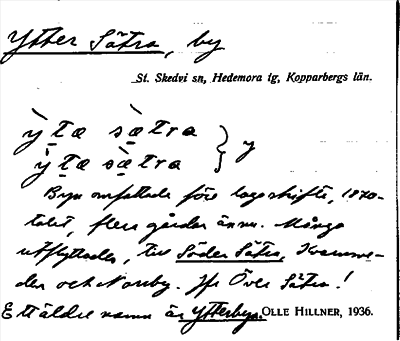 Ytter Sätra, by
St. Skedvi sn, Hedemora tg, Kopparbergs län.
ỳtæ sætra } y
ỳtæ sætra
Byn omfattade före laga skifte, 1870-
talet, flera gårdar ännu. Många
utflyttades, till Söder Sätra, Kvarnne-
der och Norrby. Jfr Över Sätra!
Ett äldre namn är Ytterbyn. OLLE HILLNER, 1936.